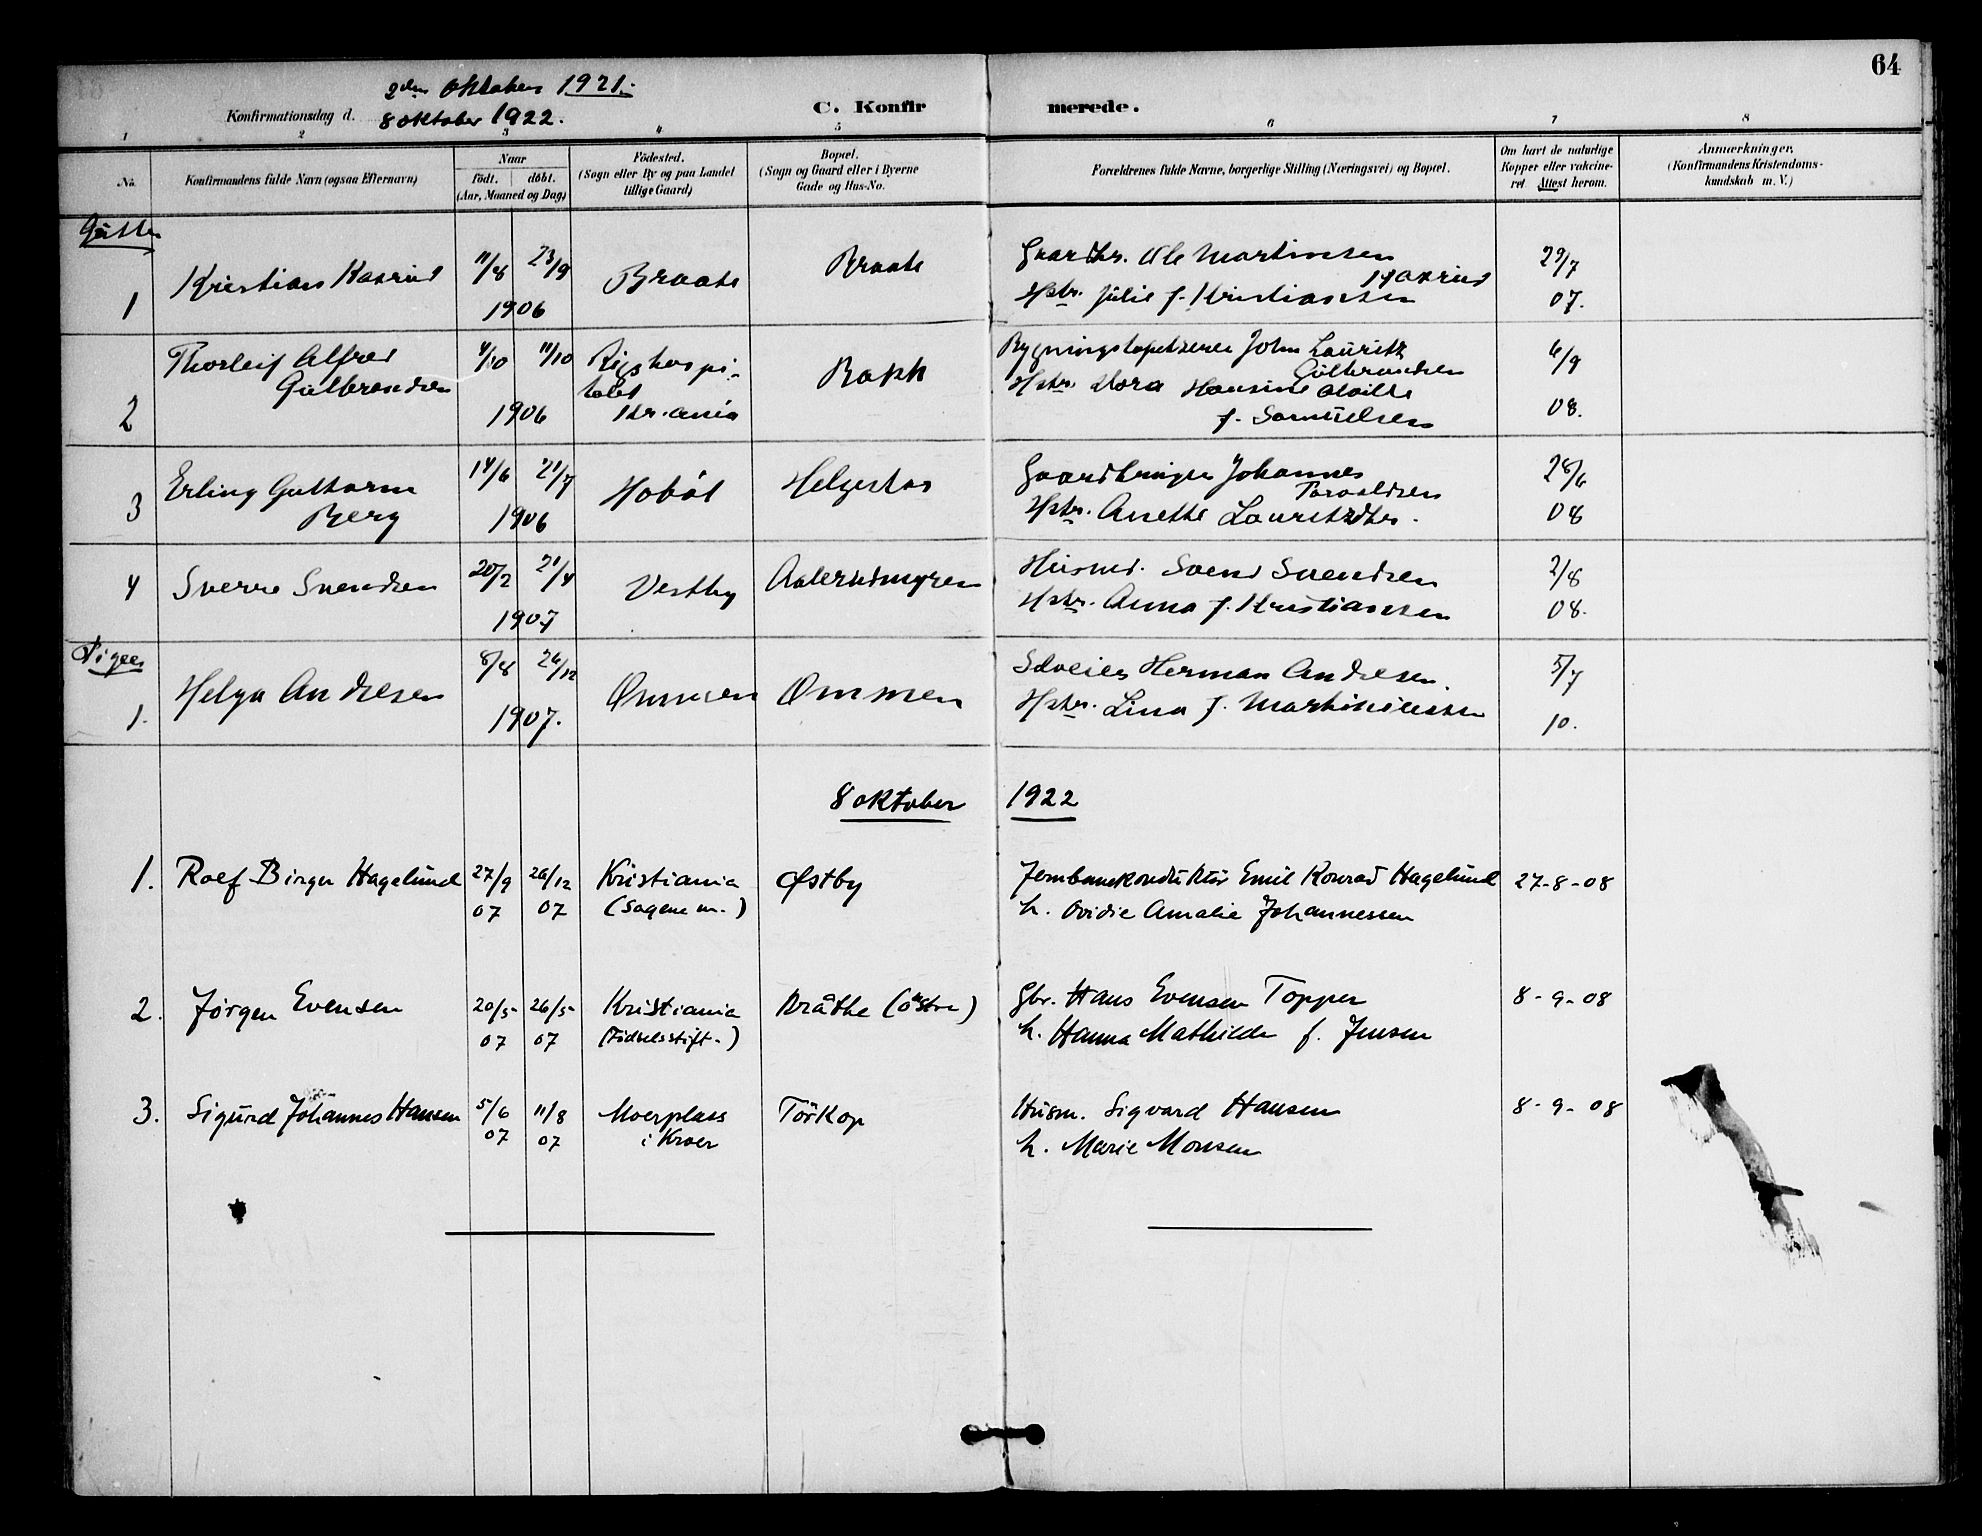 64
2den oktober 1921.
Konfirmationsdag d. 8 oktober 1922.
C. Konfirmerede.
1 2 3 4 5 6 7 8
No. Konfirmandens fulde Navn (ogsaa Efternavn)
Naar
født. døbt.
(Aar, Maaned og Dag)
Födested.
(Sogn eller By og paa Landet
tillige Gaard)
Bopæl.
(Sogn og Gaard eller i Byerne
Gade og Hus-No.
Forældrenes fulde Navne, borgerlige Stilling (Næringsvei) og Bopæl.
Om havt de naturlige
Kopper eller vakcine-
ret. Attest herom.
Anmærkninger,
(Konfirmandens Kristendoms-
kundskab m. V.)
Gutter
1 Kristian Haxrud 11/8 23/9 1906 Braate Braate
Gaardbr. Ole Martinsen
Haxrud
Hstr. Julie f. Kristiansen
29/7
07.
2 Thorleif Alfred
Gulbrandsen
4/10 11/10 1906
Rigshospi-
talet
Kr.ania
Bakk
Bygningstapetserer John Lauritz
Gulbrandsen
Hstr. Dora Hansine
f. Samuelsen
6/9
08.
3 Erling Guttorm
Berg
14/6 21/7 1906 Hobøl Helgestad
Gaardbruger Johannes
Taraldsen
Hstr. Anette Lauritzdtr.
28/6
08
4 Sverre Svendsen 20/2 21/4 1907 Vestby Aalerudmyren
Husmd. Svend Svendsen
Hstr. Anna f. Kristiansen
2/8
08.
Piger
1. Helga Andresen 8/8 26/12 1907. Ommen Ommen
Selveier Herman Andresen.
Hstr. Lina f. Martiniussen
5/7
10.
8 oktober 1922
1. Rolf Birger Hagelund 27/9 07 26/12 07
Kristiania
(Sagene m.)
Østby
Jernbanekonduktør Emil Konrad Hagelund
h. Ovidie Amalie Johannessen
27-8-08
2. Jørgen Evensen 20/5- 07 26/5- 07
Kristiania
(Födselsstift.)
Bråthe (östre)
Gbr. Hans Evensen Topper
h. Hanna Mathilde f. Jensen
8-9-08
3. Sigurd Johannes Hansen 5/6 07 11/8 07
Moerplass
i Kroer
Törkop
Husm. Sigvard Hansen
h. Marie Monsen
8-9-08